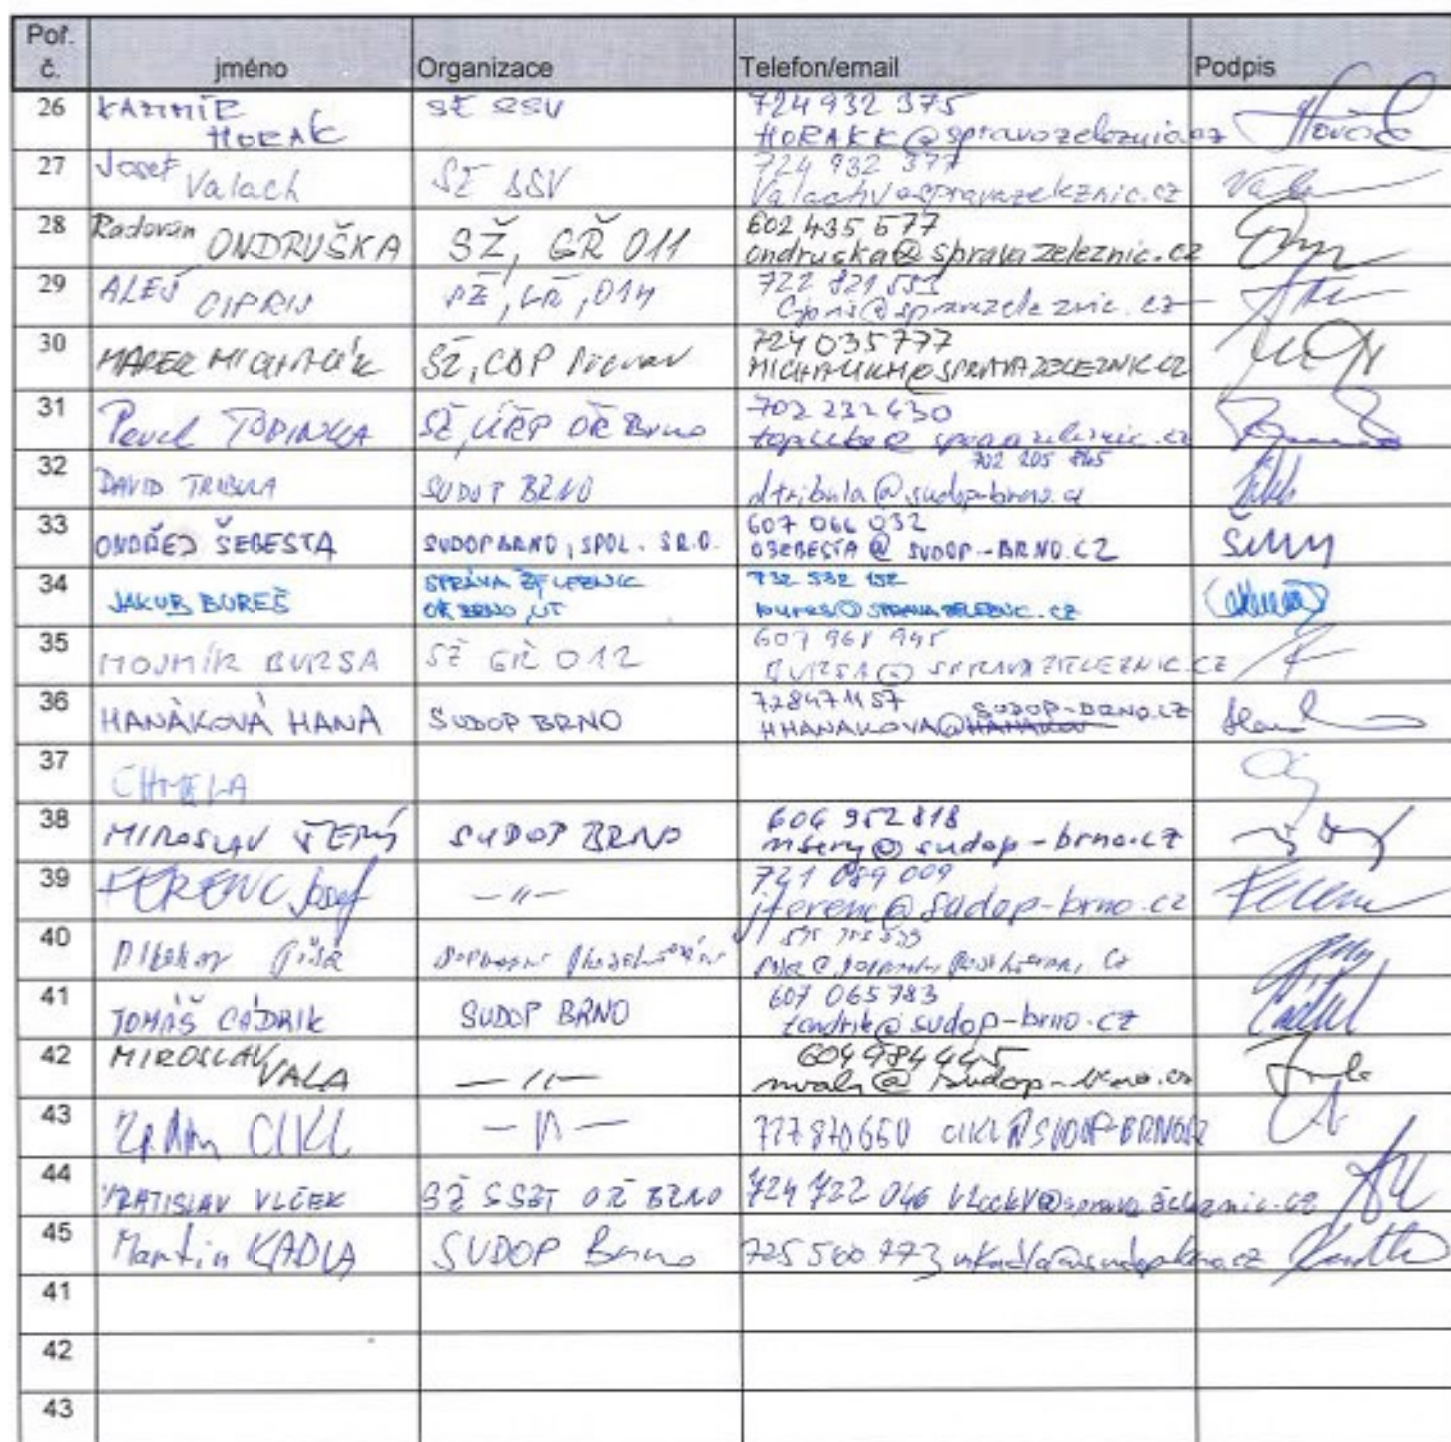 Poř. č. jméno Organizace Telefon/email Podpis
26 KAZIMÍR HORÁK SŽ SSV 724 932 375
HORAKK@spravazeleznic.cz
27 Josef Valach SŽ SSV 724 932 377
Valachv@spravazeleznic.cz
28 Radovan ONDRUŠKA SŽ, GŘ O11 602 435 577
ondruska@spravazeleznic.cz
29 ALEŠ CIPRIS SŽ, GŘ, O14 722 821
@spravazeleznic.cz
30 MAREK MICHALÍK SŽ, CDP 724 035 777
MICHALIKM@SPRAVAZELEZNIC.CZ
31 Pavel TOPINKA SŽ, OŘ Brno 702 232 430
spravazeleznic.cz
32 DAVID TRIBULA SUDOP BRNO 702 205 845
dtribula@sudop-brno.cz
33 ONDŘEJ ŠEBESTA SUDOP BRNO, SPOL. S R.O. 607 066 032
OSEBESTA@SUDOP-BRNO.CZ
34 JAKUB BUREŠ SPRÁVA ŽELEZNIC OŘ BRNO, ÚT 732 532 152
bures@SPRAVAZELEZNIC.CZ
35 MOJMÍR BURSA SŽ GŘ O12 607 968 945
BURSA@SPRAVAZELEZNIC.CZ
36 HANÁKOVÁ HANA SUDOP BRNO 728471157
HHANAKOVA@SUDOP-BRNO.CZ
37 CHMELA
38 MIROSLAV ŠERÝ SUDOP BRNO 606 952 818
msery@sudop-brno.cz
39 FERENC Josef —〃— 721 089 009
jferenc@sudop-brno.cz
40
41 TOMÁŠ CÁDRIK SUDOP BRNO 607 065 783
sudop-brno.cz
42 MIROSLAV VALA —〃— 604 984 445
mvala@sudop-brno.cz
43 CIKL —〃— 777870660 CIKL@SUDOP-BRNO.CZ
44 VRATISLAV VLČEK SŽ SSZT OŘ BRNO 724 722 046 VlcekV@spravazeleznic.cz
45 Martin KADLA SUDOP Brno 725 560 773 mkadla@sudop-brno.cz
41
42
43